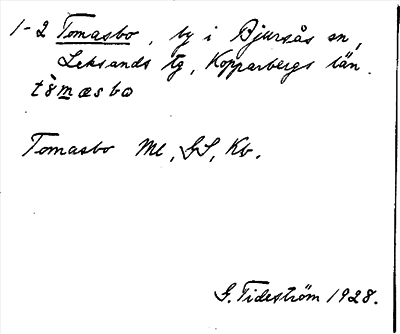 1-2 Tomasbo, by i Bjursås sn,
Leksands tg, Kopparbergs län.
tòmasbo
Tomasbo Ml, GS, Kb.
G. Tideström 1928.